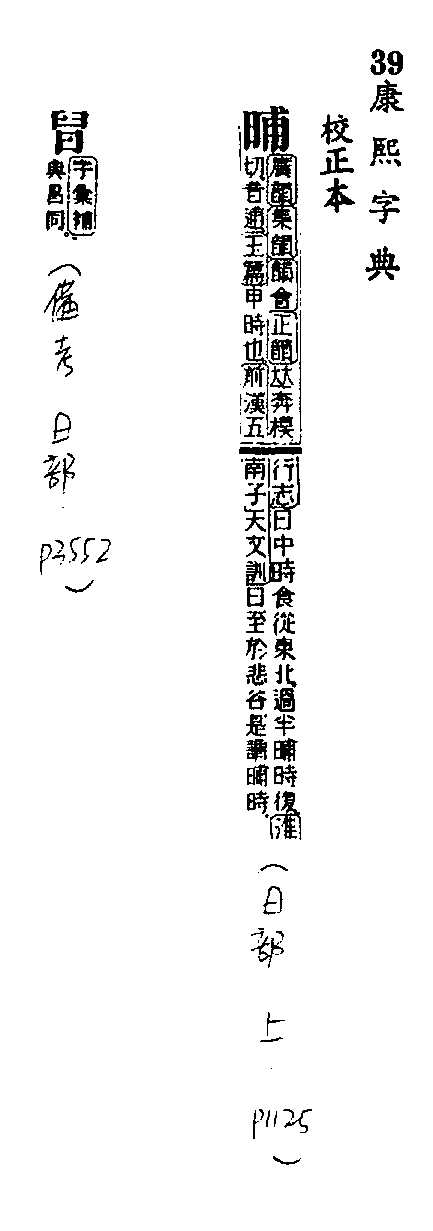 39
康熙字典
校正本
晡
廣韻集韻韻會正韻𠀤奔模
切音逋玉篇申時也前漢五
行志日中時食從東北過半晡時復淮
南子天文訓日至於悲谷是謂晡時
(日部 上. p1125)
字彙補
與 同
(備考 日部. p3552)